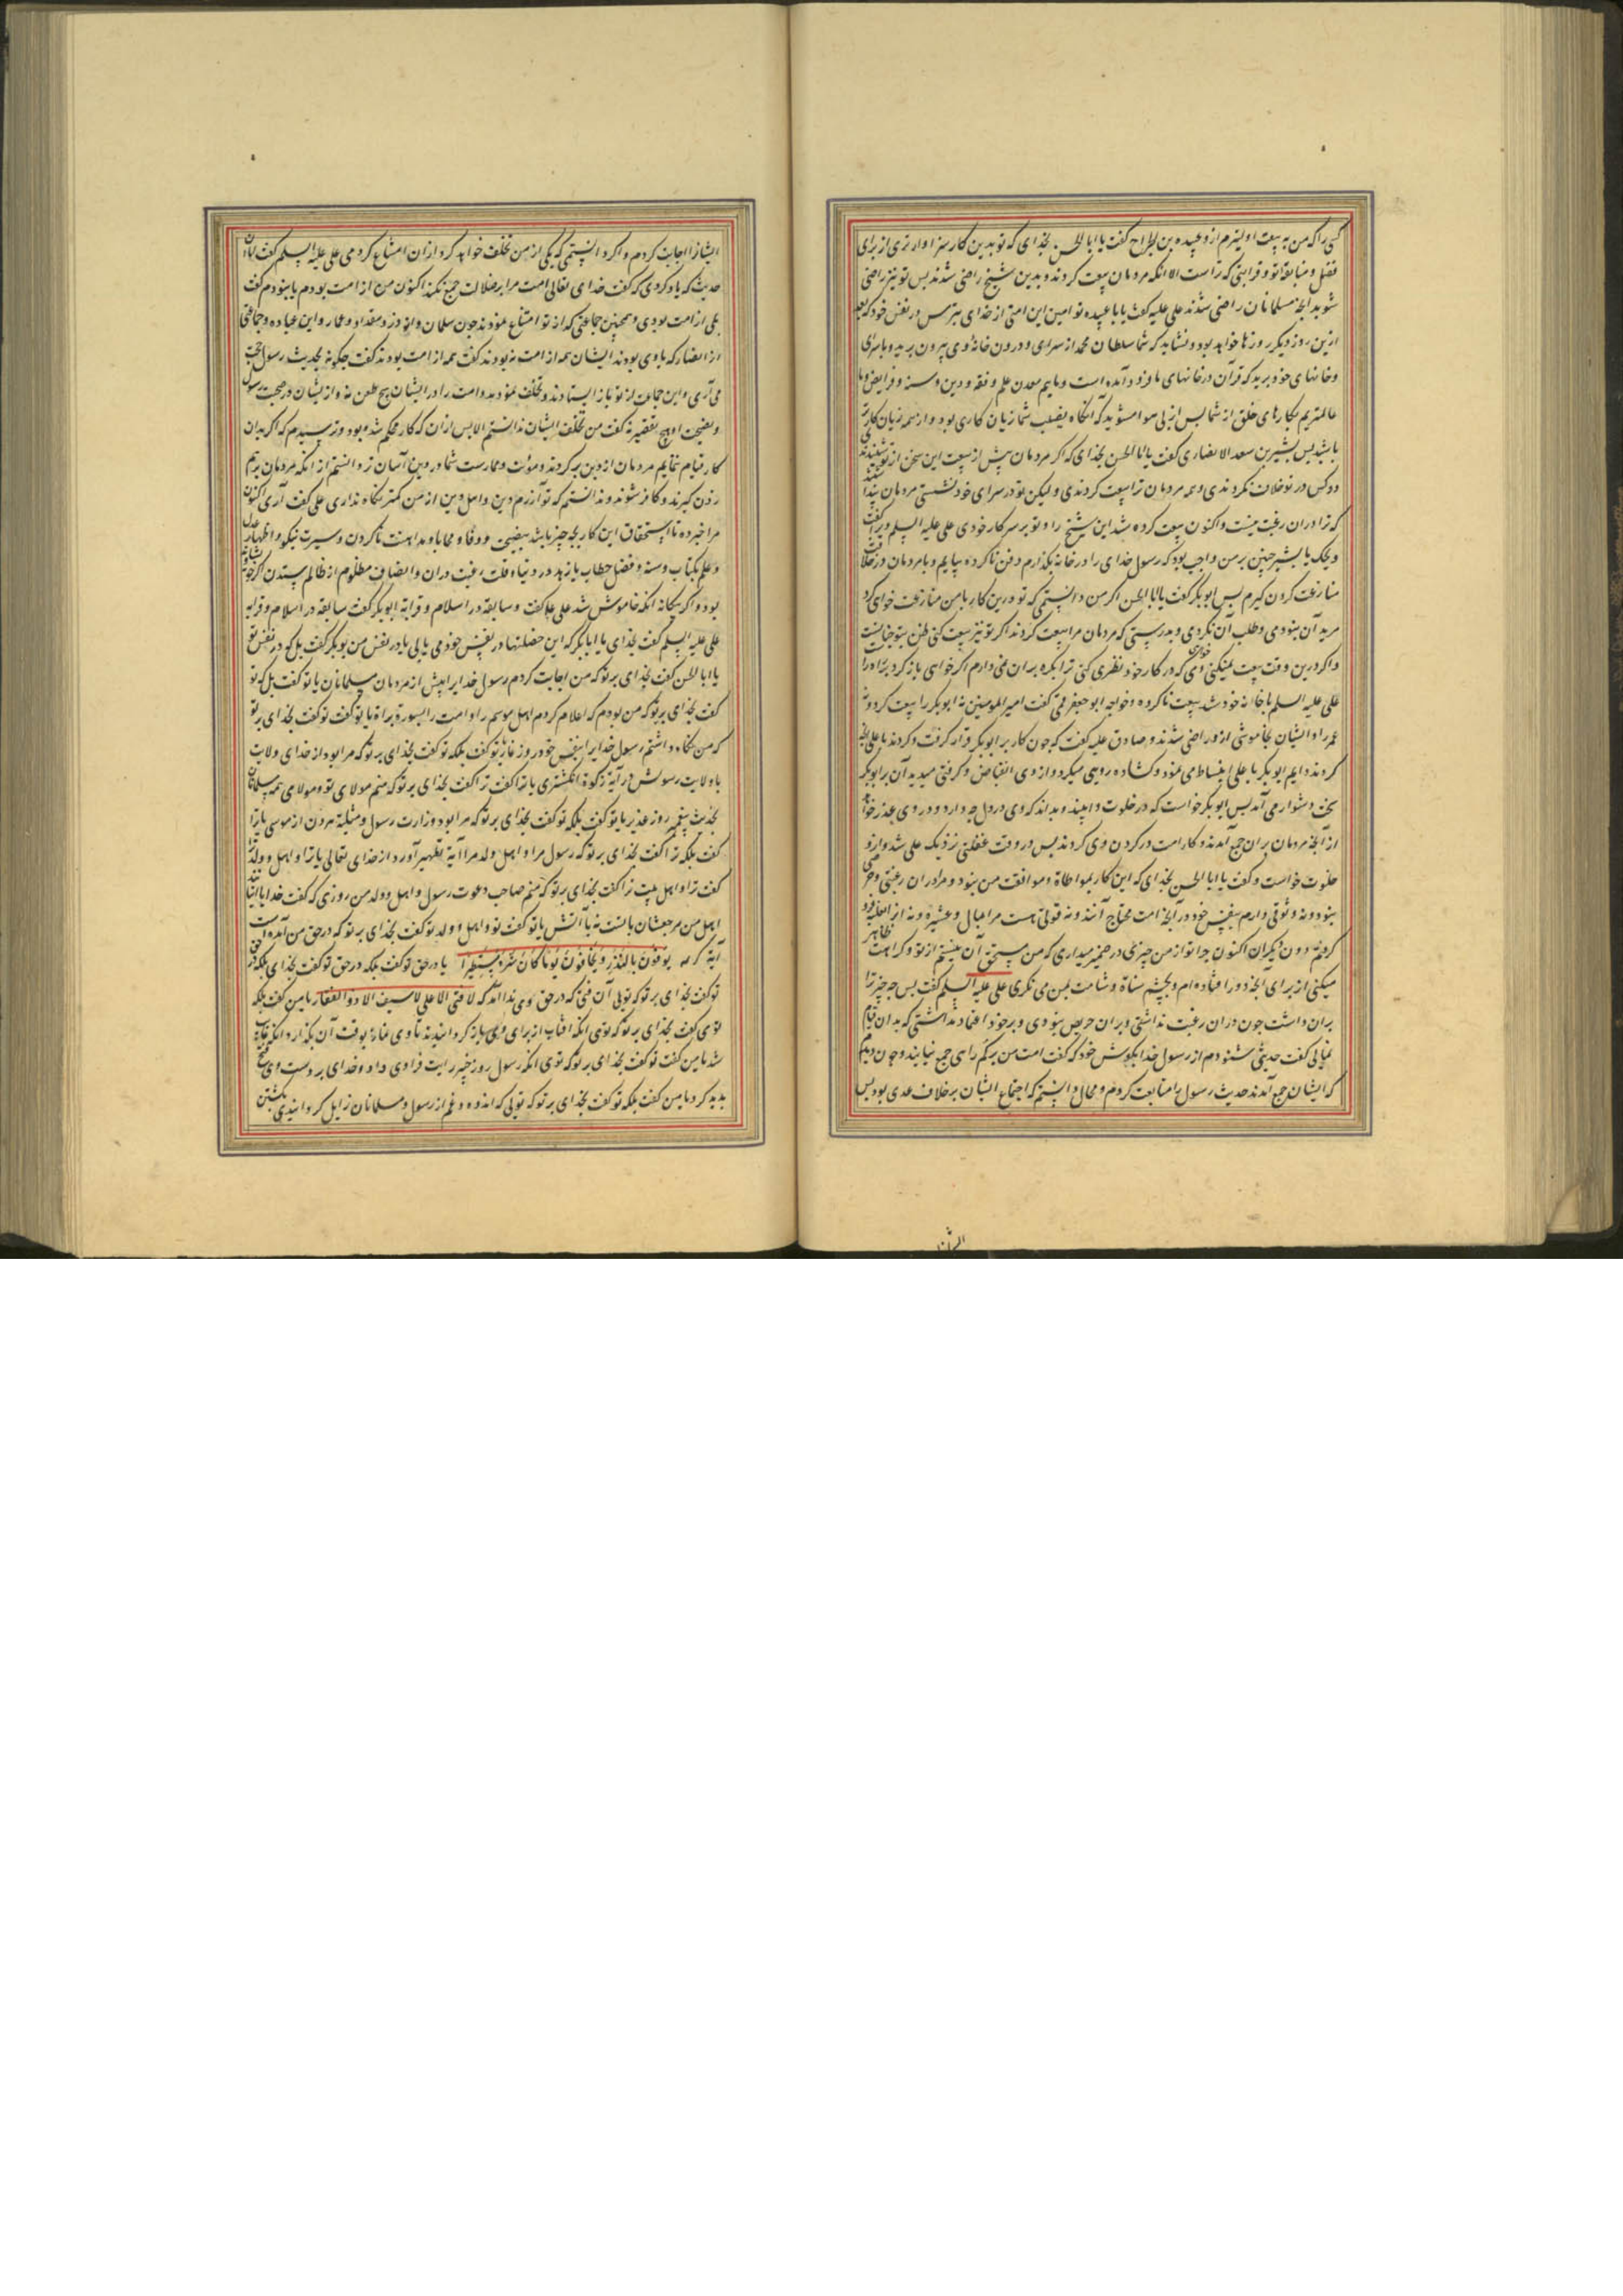 کسی را که من به بیعت اولیترم از و عبیده بن الجراح گفت یا ابا الحسن بخدای که تو بدین کار سزاوارتری از برای
فضل و سابقه تو و قرابتی که تراست الا انکه مردمان بیعت کردند و بدین شیخ راضی شدند پس تو نیز راضی
شو بدانچه مسلمانان راضی شدند علی علیه گفت یا با عبیده تو امین این امتی از خدای بترس در نفس خود که بعد
ازین روز دیگر روزها خواهد بود و نشاید که شما سلطان محمد از سرای و درون خانه وی بیرون برید و با سرای
و خانهای خود برید که قرآن در خانهای ما فرود آمده است و ماییم معدن علم و فقه و دین و سنه و فرایض و ما
عالمتریم بکارهای خلق از شما پس از پی هوا مشوید که آنگاه نصیب شما زیان کاری بود و از همه زیان کارتر
باشید پس بشیر بن سعد الانصاری گفت یا ابا الحسن بخدای که اگر مردمان پیش از بیعت این سخن از تو شنیدندی
دو کس در تو خلاف نکردندی و همه مردمان ترا بیعت کردندی و لیکن تو در سرای خود نشستی مردمان پنداشتند
که ترا در آن رغبت نیست و اکنون بیعت کرده شد این شیخ را و تو بر سر کار خودی علی علیه السلم ویرا گفت
ویحک یا بشیر چنین بر من واجب بود که رسول خدای را در خانه بگذارم دفن ناکرده بیایم و با مردمان در خلافت
منازعت کردن گیرم پس ابوبکر گفت یا ابا الحسن اگر من دانستمی که تو درین کار با من منازعت خواهی کرد
مرید آن نبودمی و طلب آن نکردمی و بدرستی که مردمان مرا بیعت کردند اگر تو نیز بیعت کنی ظن بتو چنانست
و اگر درین وقت بیعت نمیکنی و می خواهی که در کار خود نظری کنی ترا اکراه بر آن نمی دارم اگر خواهی باز گرد
علی علیه السلم با خانه خود شد بیعت ناکرده و خواجه ابو جعفر قمی گفت امیر المومنین نه ابوبکر را بیعت کرد و نه
عمر را و ایشان بخاموشی از و راضی شدند و صادق علیه گفت که چون کار بر ابوبکر قرار گرفت و کردند با علی آنچه
کردند دایم ابوبکر با علی انبساط می نمود و گشاده رویی میکرد و از وی انقباض و گرفتی میدید آن بر ابوبکر
سخت دشوار می آمد پس ابوبکر خواست که در خلوت وا بیند و بداند که وی در دل چه دارد و در وی عذر خواهد
از آنچه مردمان بر آن جمع آمدند و کار امت در گردن وی کردند پس در وقت غفلتی نزدیک علی شد و ازو
خلوت خواست و گفت یا ابا الحسن بخدای که این کار بمواطاة و موافقت من نبود و مرا در آن رغبتی و حرصی
نبود و نه وثوقی دارم بنفس خود در آنچه امت محتاج آنند و نه قوتی هست مرا بمالی و عشیره و نه
کردم دون دیگران اکنون چرا تو از من چیزی در ضمیر میداری که من مستحق آن نیستم از تو و کراهت ظاهر
میکنی از برای آنچه در افتاده ام و بچشم شناة و شماتت بمن می نگری علی علیه السلم گفت پس چه چیز ترا
بر آن داشت چون در آن رغبت نداشتی و بر آن حریص نبودی و بر خود اعتماد نداشتی که بدان قیام
نمایی گفت حدیثی شنودم از رسول خدا بگوش خود که گفت امت من بر گم راهی جمع نیایند و چون دیدم
که ایشان جمع آمدند حدیث رسول را متابعت کردم و محال دانستم که اجتماع ایشان بر خلاف هدی بود پس
ایشانرا اجابت کردم و اگر دانستمی که یکی از من تخلف خواهد کرد از آن امتناع کردمی علی علیه السلم گفت اما آن
حدیث که یاد کردی که گفت خدای تعالی امت مرا بر ضلالت جمع نکند اکنون من از امت بودم یا نبودم گفت
بلی از امت بودی و همچنین جماعتی که از تو امتناع نمودند چون سلمان و ابو ذر و مقداد و عمار و ابن عباده و جماعتی
از انصار که با وی بودند ایشان همه از امت نه بودند گفت همه از امت بودند گفت چگونه بحدیث رسول حجت
می آری و این جماعت از تو باز ایستادند و تخلف نمودند و امت را در ایشان هیچ طعن نه و از ایشان در صحبت رسول
و نصیحت او هیچ تقصیر نه گفت من تخلف ایشان ندانستم الا پس از آن که کار محکم شده بود و ترسیدم که اگر بدان
کار قیام ننمایم مردمان از دین برگردند و مؤنت و ممارست شما در دین آسان تر دانستم از انکه مردمان برهم
زدن گیرند و کافر شوند و ندانستم که تو آزرم دین و اهل دین از من کمتر نگاه نداری علی گفت آری اکنون
مرا خبر ده تا استحقاق این کار بچه چیز باشد بنصیحت و وفا و محابا و مداهنت ناکردن و سیرت نیکو و اظهار عدل
و علم بکتاب و سنه و فضل خطاب با زهد در دنیا و قلت رغبت در آن و انصاف مظلوم از ظالم ستدن اگر خویشاوند
بود و اگر بیگانه آنگه خاموش شد علی علیه گفت و سابقه در اسلام و قرابه ابوبکر گفت سابقه در اسلام و قرابه
علی علیه السلم گفت بخدای یا ابابکر که این خصلتها در نفس خود می یابی یا در نفس من بوبکر گفت بل که در نفس تو
یا ابا الحسن گفت بخدای بر تو که من اجابت کردم رسول خدایرا پیش از مردمان مسلمانان یا تو گفت بل که تو
گفت بخدای بر تو که من بودم که اعلام کردم اهل موسم را و امت را بسورة براة یا تو گفت تو گفت بخدای بر تو
که من نگاه داشتم رسول خدایرا بنفس خود روز غار یا تو گفت بلکه تو گفت بخدای بر تو که مرا بود از خدای ولایت
با ولایت رسولش در آیه زکوة انگشتری یا ترا گفت ترا گفت بخدای بر تو که منم مولای تو و مولای همه مسلمانان
بحدیث پیغمبر روز غدیر یا تو گفت بلکه تو گفت بخدای بر تو که مرا بود وزارت رسول و مثلیة هرون از موسی یا ترا
گفت بلکه ترا گفت بخدای بر تو که رسول مرا و اهل ولد مرا آیة تطهیر آورد از خدای تعالی یا ترا و اهل و ولد ترا
گفت ترا و اهل بیت ترا گفت بخدای بر تو که منم صاحب دعوت رسول و اهل و ولد من روزی که گفت خدایا اینان
اهل من مرجعشان با تست نه با آتش یا تو گفت تو و اهل و ولد تو گفت بخدای بر تو که در حق من آمده است
آیه کریمه یوفون بالنذر و یخافون یوما کان شره مستطیرا یا در حق تو گفت بلکه در حق تو گفت بخدای
تو گفت بخدای بر تو که تویی آن فتی که در حق وی ندا آمد که لا فتی الا علی لا سیف الا ذو الفقار یا من گفت بلکه
توی گفت بخدای بر تو که توی انکه افتاب از برای وی باز گردانیدند تا وی نماز بوقت آن بگذارد
شد یا من گفت تو گفت بخدای بر تو که توی انکه رسول روز خیبر رایت فرا وی داد و خدای بر دست وی فتح
پدید کرد یا من گفت بلکه تو گفت بخدای بر تو که تویی که اندوه و غم از رسول و مسلمانان زایل گردانیدی بکشتن